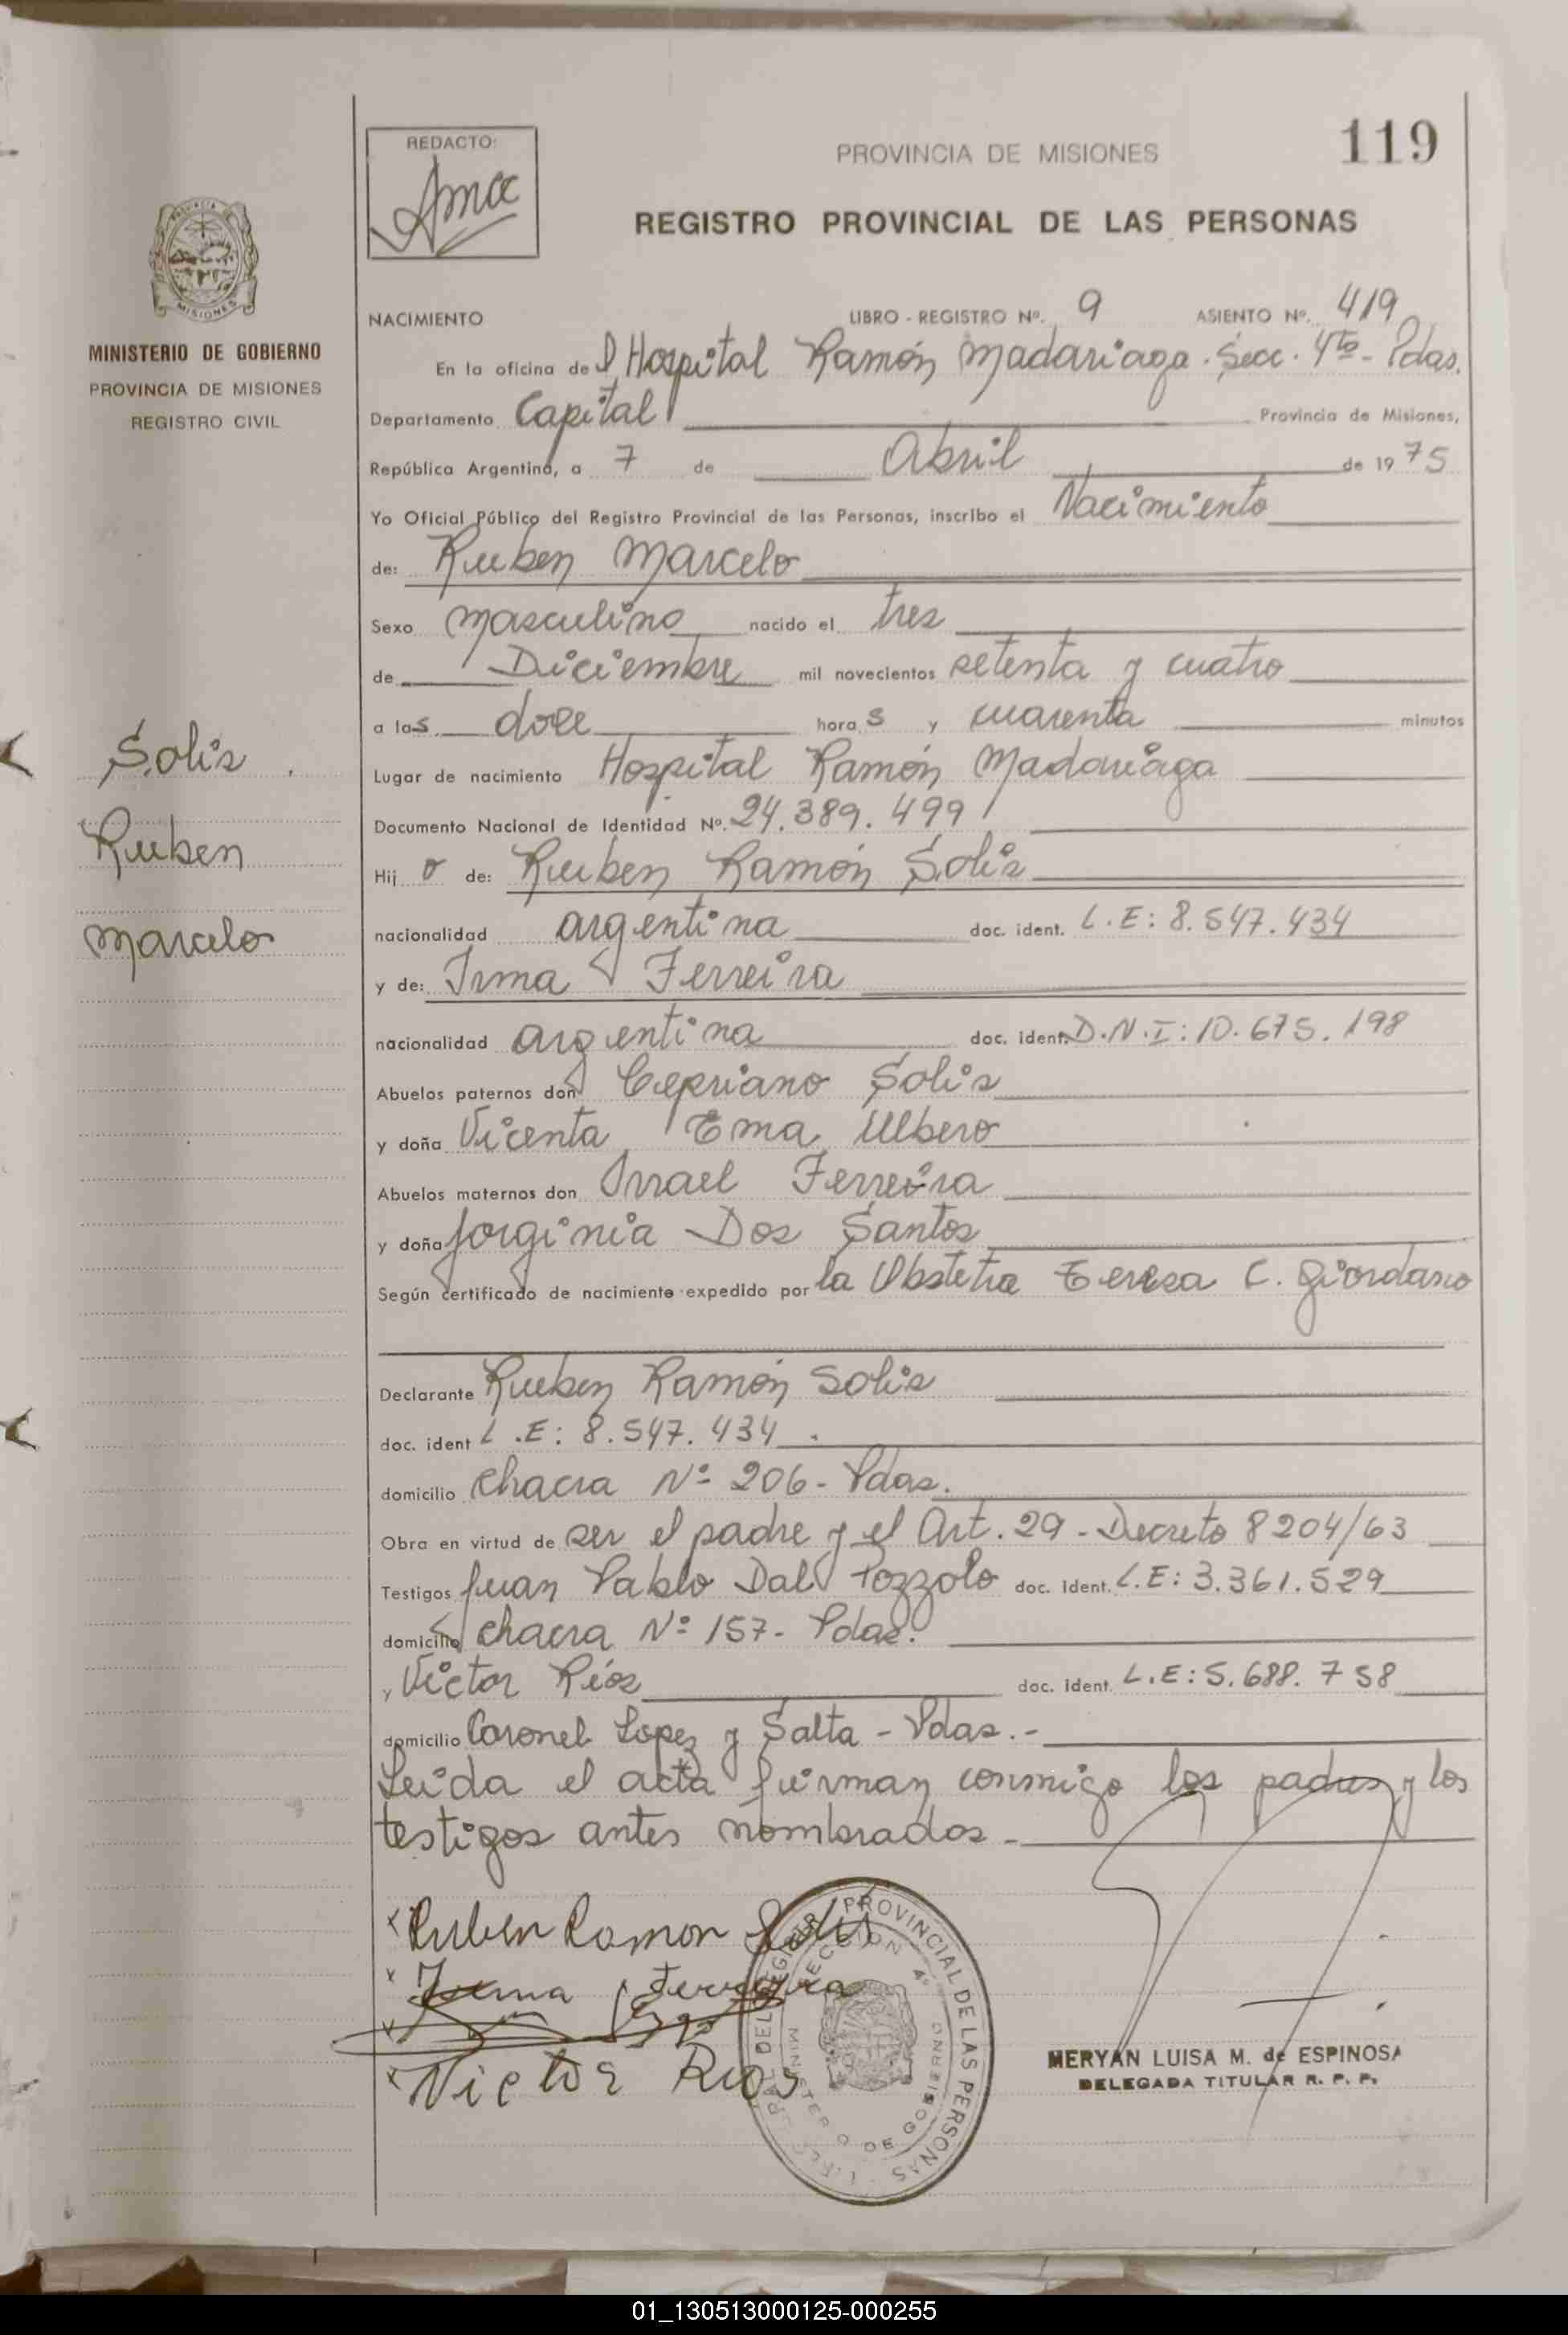 REDACTO:
PROVINCIA DE MISIONES
119
REGISTRO PROVINCIAL DE LAS PERSONAS
MISIONES
MINISTERIO DE GOBIERNO
PROVINCIA DE MISIONES
REGISTRO CIVIL
NACIMIENTO LIBRO - REGISTRO Nº. 9 ASIENTO Nº. 419
En la oficina del Hospital Ramón Madariaga. Secc. 4ta - Pdas.
Departamento Capital Provincia de Misiones,
República Argentina, a 7 de Abril de 1975
Yo Oficial Público del Registro Provincial de las Personas, inscribo el Nacimiento
de: Ruben Marcelo
Sexo masculino nacido el tres
de Diciembre mil novecientos setenta y cuatro
a las doce horas y cuarenta minutos
Lugar de nacimiento Hospital Ramón Madariaga
Documento Nacional de Identidad Nº. 24.389.499
Hijo de: Ruben Ramón Solis
nacionalidad argentina doc. ident. L.E: 8.547.434
y de: Irma Ferreira
nacionalidad argentina doc. ident. D.N.I: 10.675.198
Abuelos paternos don Cipriano Solis
y doña Vicenta Ema Ulbero
Abuelos maternos don Orrael Ferreira
y doña Jorginia Dos Santos
Según certificado de nacimiento expedido por la Obstetra Teresa C. Giordano
Declarante Ruben Ramón Solis
doc. ident L.E: 8.547.434.
domicilio Chacra Nº 206 - Pdas.
Obra en virtud de ser el padre y el Art. 29 - Decreto 8204/63
Testigos Juan Pablo Dal Pozzolo doc. ident. L.E: 3.361.529
domicilio Chacra Nº 157 - Pdas.
y Victor Ríos doc. ident. L.E: 5.688.758
domicilio Coronel Lopez y Salta - Pdas.-
Leida el acta firman conmigo los padres y los
testigos antes nombrados -
Solis
Ruben
Marcelo
x Ruben Ramon Solis
x Irma Ferreira
x
x Victor Rios
REGISTRO PROVINCIAL DE LAS PERSONAS
SECCION 4ª
MINISTERIO DE GOBIERNO
MERYAN LUISA M. de ESPINOSA
DELEGADA TITULAR R. P. P.
01_130513000125-000255